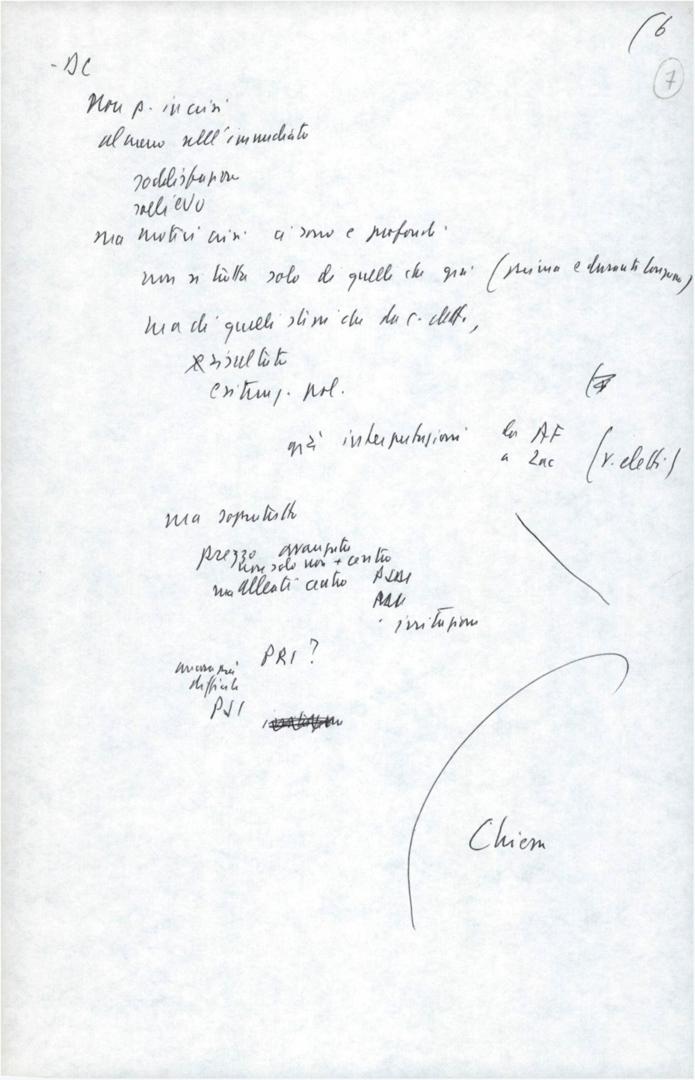 (6
7
- DC
Non p. in crisi
almeno nell'immediato
soddisfazione
sollievo
ma motivi crisi ci sono e profondi.
non si tratta solo di quelli che già (prima e durante
ma di quelli stessi che da r. elett.,
risultato
pol.
già interpretazioni da AF
a Zac (r. elett.)
ma soprattutto
prezzo avanzata
non solo non + centro
ma alleati centro PSDI
irritazione
PRI?
ancora più
difficile
PSI
Chiesa